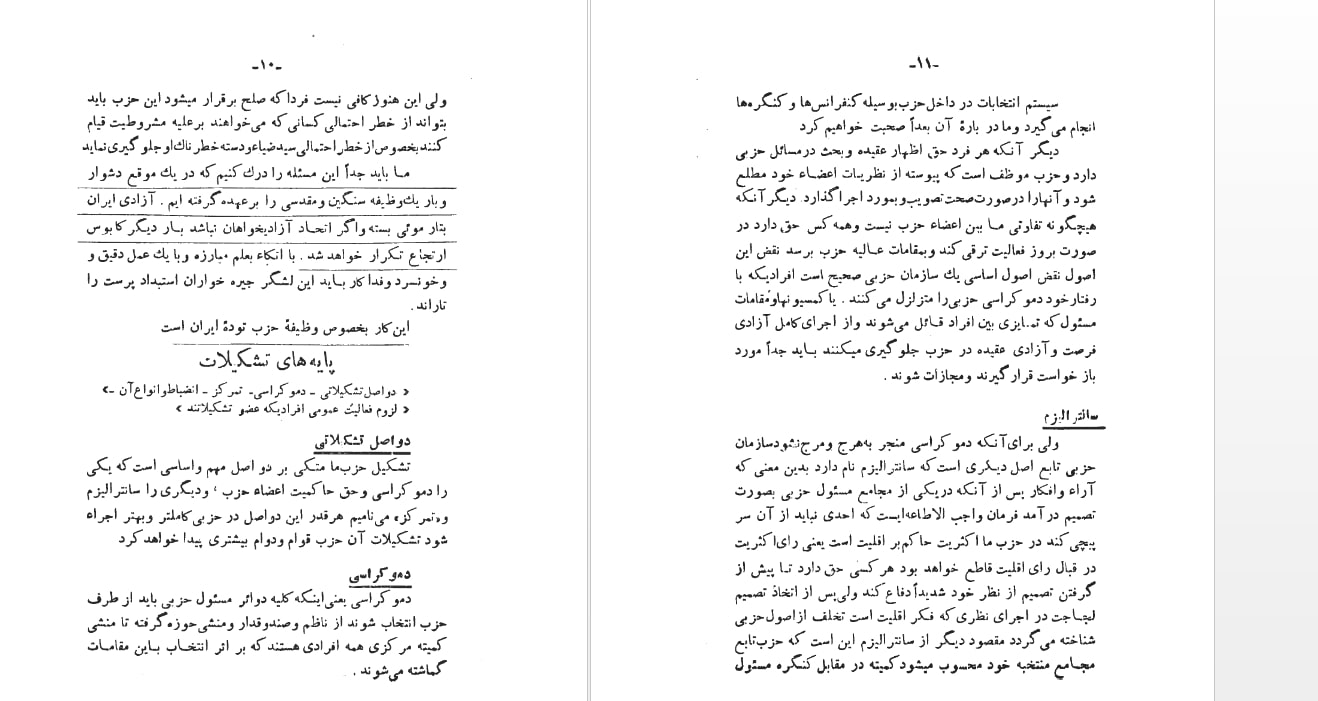 -۱۰-
ولی این هنوز کافی نیست فردا که صلح برقرار میشود این حزب باید
بتواند از خطر احتمالی کسانی که می‌خواهند بر علیه مشروطیت قیام
کنند بخصوص از خطر احتمالی سید ضیاء و دسته خطرناك او جلوگیری نماید
ما باید جداً این مسئله را درك کنیم که در یك موقع دشوار
و باریك وظیفه سنگین و مقدسی را بر عهده گرفته ایم . آزادی ایران
بتار موئی بسته و اگر اتحاد آزادیخواهان نباشد بار دیگر کابوس
ارتجاع تکرار خواهد شد . با اتکاء بعلم مبارزه و با یك عمل دقیق و
و خونسرد و فداکار باید این لشگر جیره خواران استبداد پرست را
تاراند .
این کار بخصوص وظیفهٔ حزب تودهٔ ایران است
پایه های تشکیلات
« دو اصل تشکیلاتی - دموکراسی - تمرکز - انضباط و انواع آن - »
« لزوم فعالیت عمومی افرادیکه عضو تشکیلاتند »
دو اصل تشکلاتی
تشکیل حزب ما متکی بر دو اصل مهم و اساسی است که یکی
را دموکراسی و حق حاکمیت اعضاء حزب ، و دیگری را سانترالیزم
و «تمرکز» می‌نامیم هر قدر این دو اصل در حزبی کاملتر و بهتر اجراء
شود تشکیلات آن حزب قوام و دوام بیشتری پیدا خواهد کرد
دموکراسی
دموکراسی یعنی اینکه کلیه دوائر مسئول حزبی باید از طرف
حزب انتخاب شوند از ناظم و صندوقدار و منشی حوزه گرفته تا منشی
کمیته مرکزی همه افرادی هستند که بر اثر انتخاب باین مقامات
گماشته می‌شوند .
-۱۱-
سیستم انتخابات در داخل حزب بوسیله کنفرانس‌ها و کنگره‌ها
انجام می‌گیرد و ما در بارهٔ آن بعداً صحبت خواهیم کرد
دیگر آنکه هر فرد حق اظهار عقیده و بحث در مسائل حزبی
دارد و حزب موظف است که پیوسته از نظریات اعضاء خود مطلع
شود و آنها را در صورت صحت تصویب و بمورد اجرا گذارد. دیگر آنکه
هیچگونه تفاوتی ما بین اعضاء حزب نیست و همه کس حق دارد در
صورت بروز فعالیت ترقی کند و بمقامات عالیه حزب برسد نقض این
اصول نقض اصول اساسی یك سازمان حزبی صحیح است افرادیکه با
رفتار خود دموکراسی حزبی را متزلزل می‌کنند . یا کمسیونها و مقامات
مسئول که تمایزی بین افراد قائل می‌شوند و از اجرای کامل آزادی
فرصت و آزادی عقیده در حزب جلوگیری میکنند باید جداً مورد
باز خواست قرار گیرند و مجازات شوند .
سانترالیزم
ولی برای آنکه دموکراسی منجر به هرج و مرج نشود سازمان
حزبی تابع اصل دیگری است که سانترالیزم نام دارد بدین معنی که
آراء و افکار پس از آنکه در یکی از مجامع مسئول حزبی بصورت
تصمیم در آمد فرمان واجب الاطاعه ایست که احدی نباید از آن سر
پیچی کند در حزب ما اکثریت حاکم بر اقلیت است یعنی رای اکثریت
در قبال رای اقلیت قاطع خواهد بود هر کسی حق دارد تا پیش از
گرفتن تصمیم از نظر خود شدیداً دفاع کند ولی پس از اتخاذ تصمیم
لجاجت در اجرای نظری که فکر اقلیت است تخلف از اصول حزبی
شناخته می‌گردد مقصود دیگر از سانترالیزم این است که حزب تابع
مجامع منتخبه خود محسوب میشود کمیته در مقابل کنگره مسئول